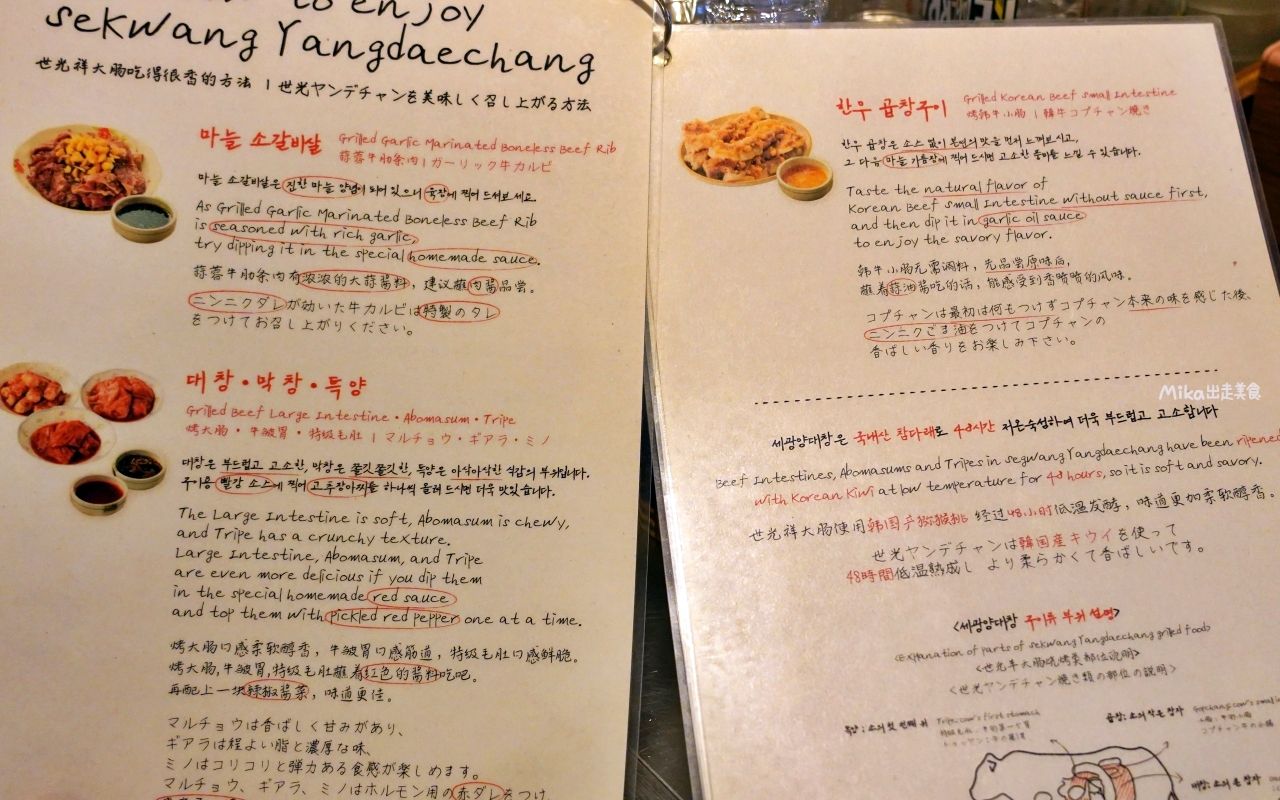 to enjoy
sekwang Yangdaechang
世光祥大肠吃得很香的方法 | 世光ヤンデチャンを美味しく召し上がる方法
마늘 소갈비살
Grilled Garlic Marinated Boneless Beef Rib
蒜蓉牛肋条肉 | ガーリック牛カルビ
마늘 소갈비살은 진한 마늘 양념이 되어 있으니 육장에 찍어 드셔보세요
As Grilled Garlic Marinated Boneless Beef Rib
is seasoned with rich garlic,
try dipping it in the special homemade sauce.
蒜蓉牛肋条肉有浓浓的大蒜酱料, 建议蘸肉酱品尝。
ニンニクダレが効いた牛カルビは特製のタレ
をつけてお召し上がりください。
대창·막창·특양
Grilled Beef Large Intestine · Abomasum · Tripe
烤大肠·牛皱胃·特级毛肚 | マルチョウ・ギアラ・ミノ
대창은 부드럽고 고소한, 막창은 쫄깃쫄깃한, 특양은 아삭아삭한 식감의 부위입니다.
빨강 소스에 찍어 고추장아찌를 하나씩 올려 드시면 더욱 맛있습니다.
The Large Intestine is soft, Abomasum is chewy,
and Tripe has a crunchy texture.
Large Intestine, Abomasum, and Tripe
are even more delicious if you dip them
in the special homemade red sauce
and top them with pickled red pepper one at a time.
烤大肠口感柔软醇香, 牛皱胃口感筋道, 特级毛肚口感鲜脆。
烤大肠,牛皱胃,特级毛肚蘸着红色的酱料吃吧。
再配上一块辣椒酱菜, 味道更佳。
マルチョウは香ばしく甘みがあり、
ギアラは程よい脂と濃厚な味、
ミノはコリコリと弾力ある食感が楽しめます。
マルチョウ、ギアラ、ミノはホルモン用の赤ダレをつけ、
한우 곱창구이
Grilled Korean Beef small Intestine
烤韩牛小肠 | 韓牛コプチャン焼き
한우 곱창은 소스 없이 본연의 맛을 먼저 느껴보시고,
그 다음 마늘 기름장에 찍어 드시면 고소한 풍미를 느낄 수 있습니다.
Taste the natural flavor of
Korean Beef small Intestine without sauce first,
and then dip it in garlic oil sauce
to enjoy the savory flavor.
韩牛小肠无需调料, 先品尝原味后,
蘸着蒜油酱吃的话, 能感受到香喷喷的风味。
コプチャンは最初は何もつけずコプチャン本来の味を感じた後、
ニンニクごま油をつけてコプチャンの
香ばしい香りをお楽しみ下さい。
Mika出走美食
세광양대창은 국내산 참다래로 48시간 저온숙성하여 더욱 부드럽고 고소합니다
Beef Intestines, Abomasums and Tripes in segwang Yangdaechang have been ripened
with Korean Kiwi at low temperature for 48 hours, so it is soft and savory.
世光祥大肠使用韩国产猕猴桃 经过48小时低温发酵, 味道更加柔软醇香。
世光ヤンデチャンは韓国産キウイを使って
48時間低温熟成し より柔らかくて香ばしいです。
<세광양대창 구이류 부위 설명>
<Explanation of parts of sekwang Yangdaechang grilled food>
<世光羊大肠吼烤类部位说明>
<世光ヤンデチャン焼き類の部位の説明>
특양 : 소의 첫 번째 위
Tripe: cow's first stomach
곱창 : 소의 작은 창자
Gopchang: cow's small